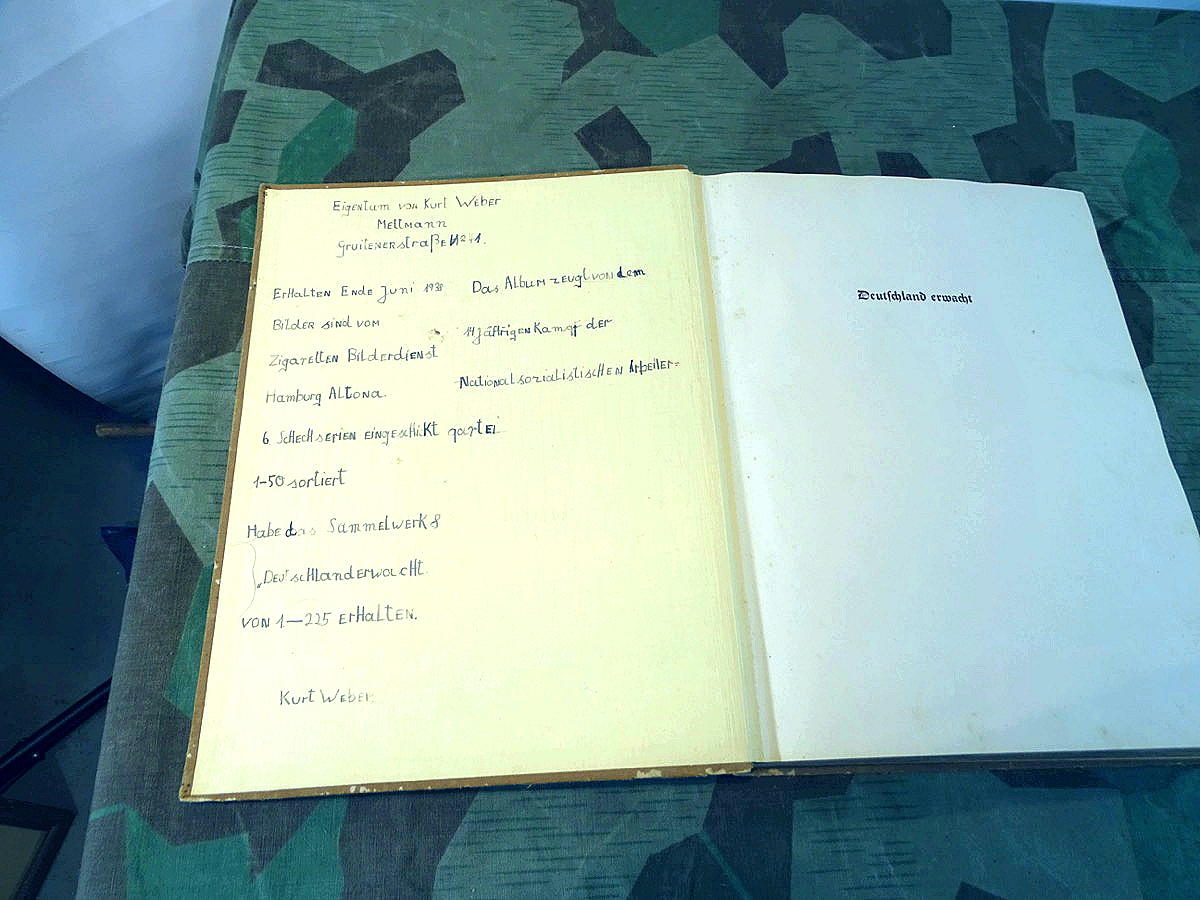 Eigentum von Kurt Weber
Mettmann
Gruitenerstraße No 41.
Erhalten Ende Juni 1938
Bilder sind vom
Zigaretten Bilderdienst
Hamburg Altona.
6 Schecksserien eingeschickt
1-50 sortiert
Habe das Sammelwerk 8
„Deutschlanderwacht
von 1—225 erhalten.
Kurt Weber.
Das Album zeugt von dem
14 jährigen Kampf der
Nationalsozialistischen Arbeiter=
partei
Deutschland erwacht